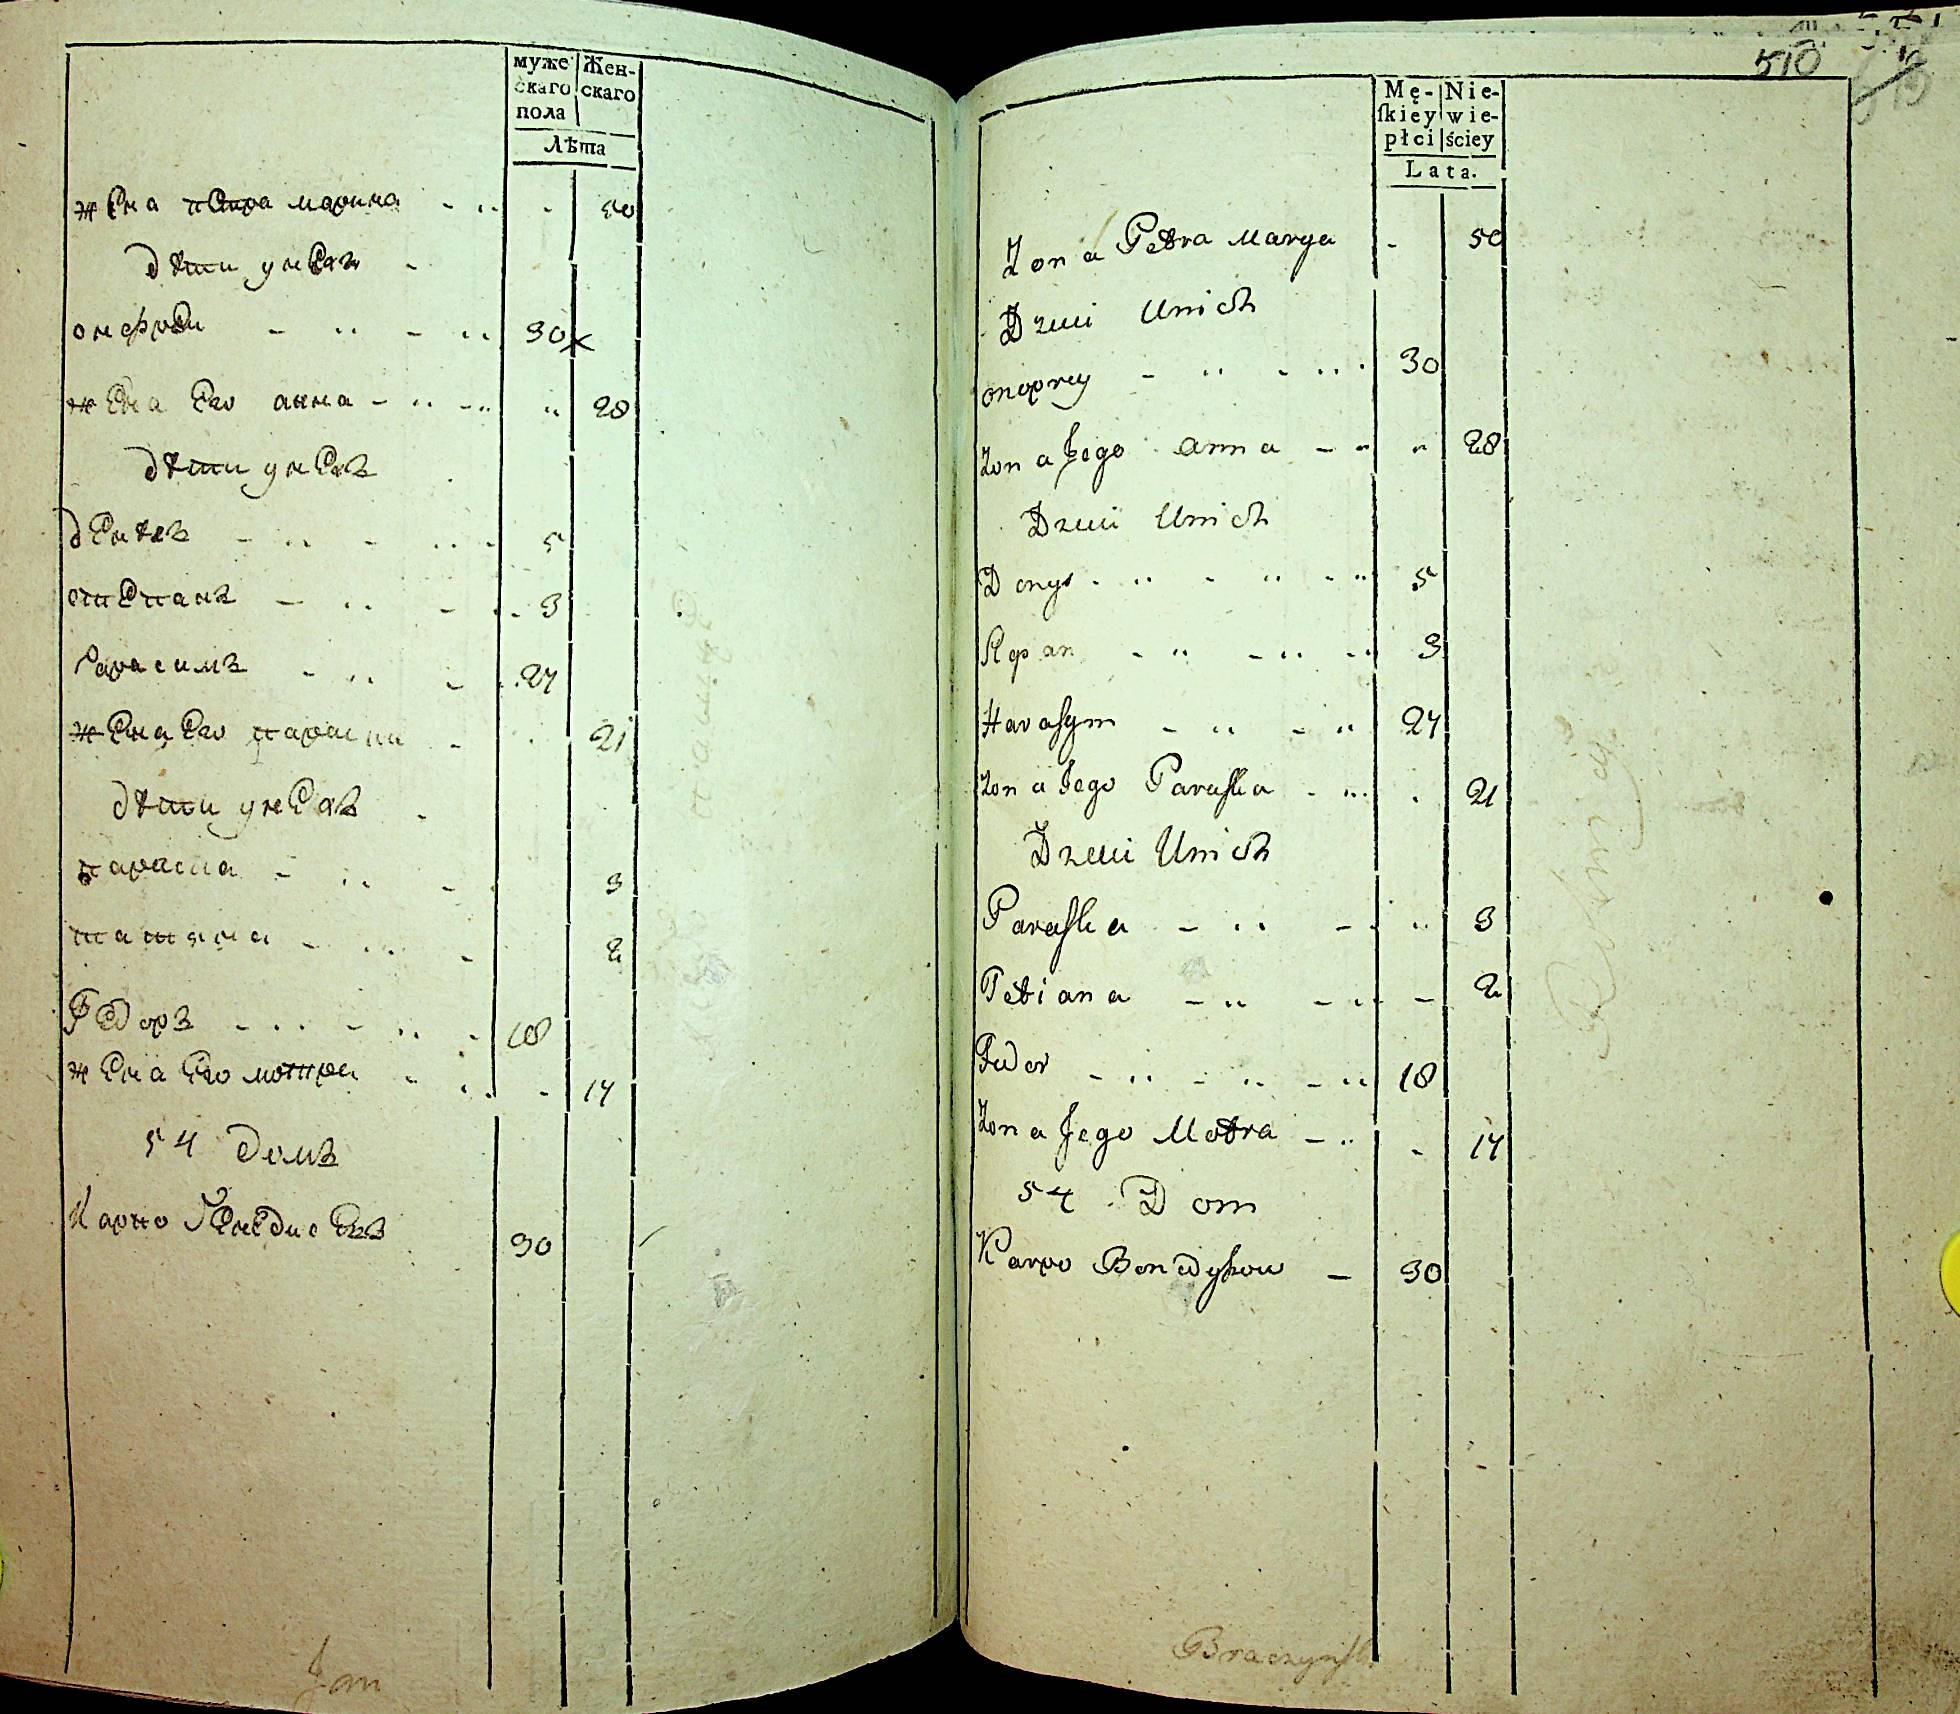 муже Жен-
скаго скаго
пола
Лѣта
жена петра марина - 50
дѣти унехъ
онофрей 30
жена Его анна 28
дѣти унехъ
денисъ 5
степанъ 3
Гарасимъ 27
жена Его параска 21
дѣти унехъ
параска 3
татяна 2
Федоръ 18
жена Его мотра - 17
54 домъ
Карпо 30
Jan
510
Mę- Nie-
ſkiey wie-
płci ściey
Lata.
Zona Petra Marya - 50
Dzieci Unich
onoprey 30
Zona Jego anna 28
Dzieci Unich
Denys 5
3
Harasym 27
Zona Jego Paraska 21
Dzieci Unich
Paraska 3
Tetiana - 2
Fedor 18
Zona Jego Motra - 17
54 Dom
Karpo 30